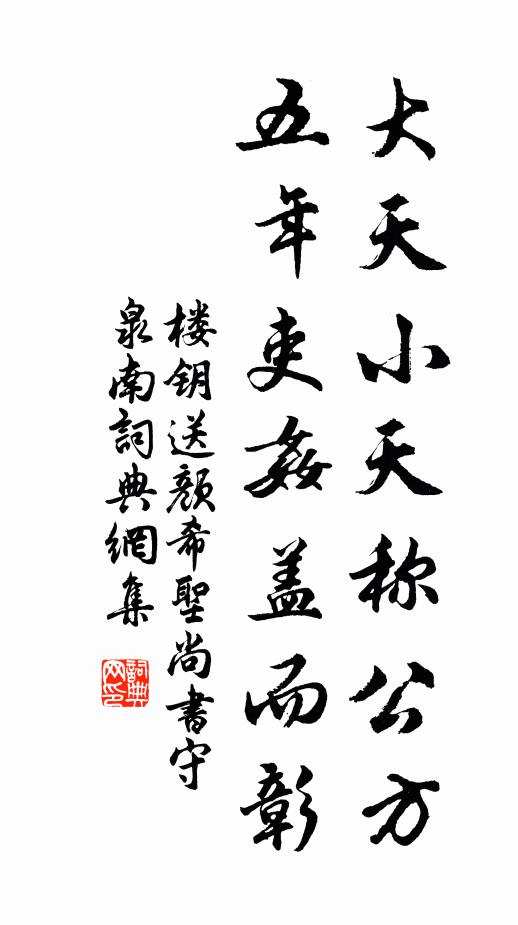 大天小天称公方
五年吏姦盖而彰
楼钥送颜希聖尚書守
泉南詞典網集
詞典网印